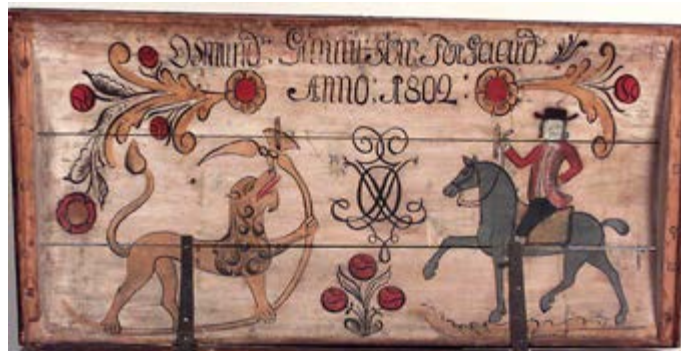 Osmund: Gunnu: søn: Torgaard:
ANNO: 1802: